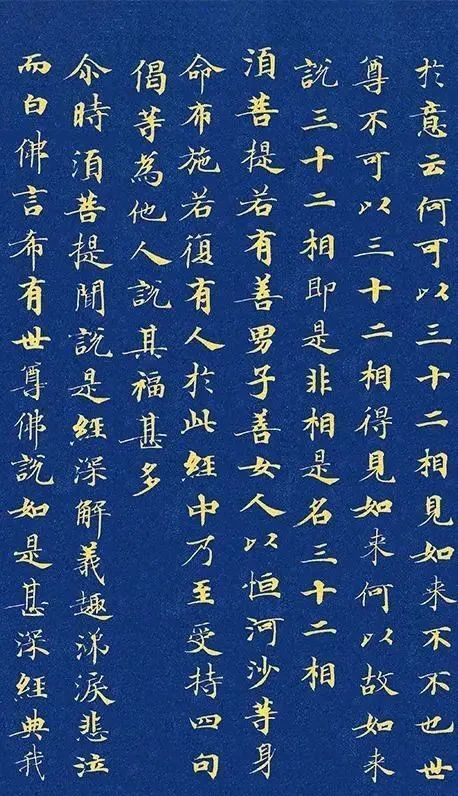 於意云何可以三十二相見如来不不也世
尊不可以三十二相得見如来何以故如来
說三十二相即是非相是名三十二相
湏菩提若有善男子善女人以恒河沙等身
命布施若復有人於此經中乃至受持四句
偈等為他人說其福甚多
尒時湏菩提聞說是經深解義趣涕淚悲泣
而白佛言希有世尊佛說如是甚深經典我